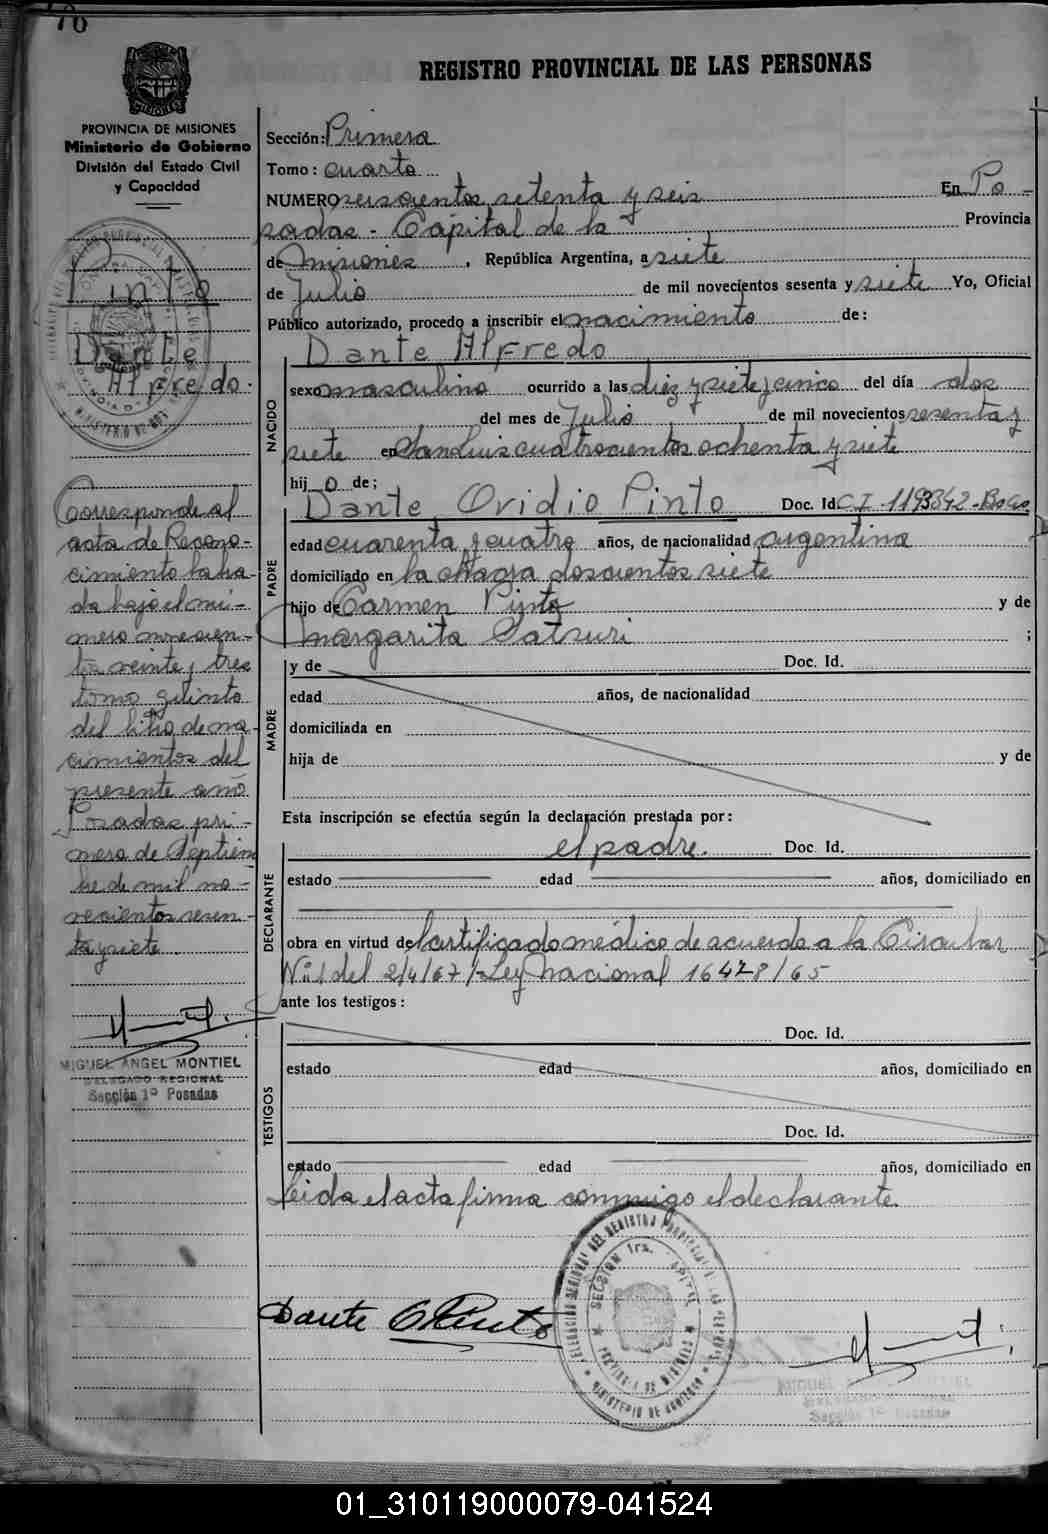 76
REGISTRO PROVINCIAL DE LAS PERSONAS
PROVINCIA DE MISIONES
Ministerio de Gobierno
División del Estado Civil
y Capacidad
Pinto
Dante
Alfredo.
Corresponde al
acta de Recono-
cimiento labra-
da bajo el nú-
mero novecien-
tos veinte y tres
tomo quinto
del libro de na-
cimientos del
presente año
Posadas pri-
mero de Septiem
bre de mil no-
vecientos sesen-
ta y siete.
MIGUEL ANGEL MONTIEL
DELEGADO REGIONAL
Sección 1º Posadas
Sección: Primera
Tomo: cuarto
NUMERO seiscientos setenta y seis En Po-
sadas - Capital de la Provincia
de Misiones, República Argentina, a siete
de Julio de mil novecientos sesenta y siete Yo, Oficial
Público autorizado, procedo a inscribir el nacimiento de:
Dante Alfredo
NACIDO
sexo masculino ocurrido a las diez y siete y cinco del día dos
del mes de Julio de mil novecientos sesenta y
siete en San Luis cuatrocientos ochenta y siete
hij o de;
PADRE
Dante Ovidio Pinto Doc. Id. C.I.
edad cuarenta y cuatro años, de nacionalidad argentina
domiciliado en la chacra doscientos siete
hijo de Carmen Pinto y de
Margarita ;
MADRE
y de Doc. Id.
edad años, de nacionalidad
domiciliada en
hija de y de
Esta inscripción se efectúa según la declaración prestada por:
DECLARANTE
el padre. Doc. Id.
estado edad años, domiciliado en
obra en virtud de certificado médico de acuerdo a la Circular
Nº 1 del 2/4/67 - Ley Nacional 16478/65
ante los testigos:
TESTIGOS
Doc. Id.
estado edad años, domiciliado en
Doc. Id.
estado edad años, domiciliado en
Leida el acta firma conmigo el declarante.
Dante O Pinto
DELEGACION REGIONAL DEL REGISTRO PROVINCIAL DE LAS PERSONAS
SECCION 1ra. CAPITAL
PROVINCIA DE MISIONES
MINISTERIO DE GOBIERNO
MIGUEL ANGEL MONTIEL
DELEGADO REGIONAL
Sección 1º Posadas
01_310119000079-041524